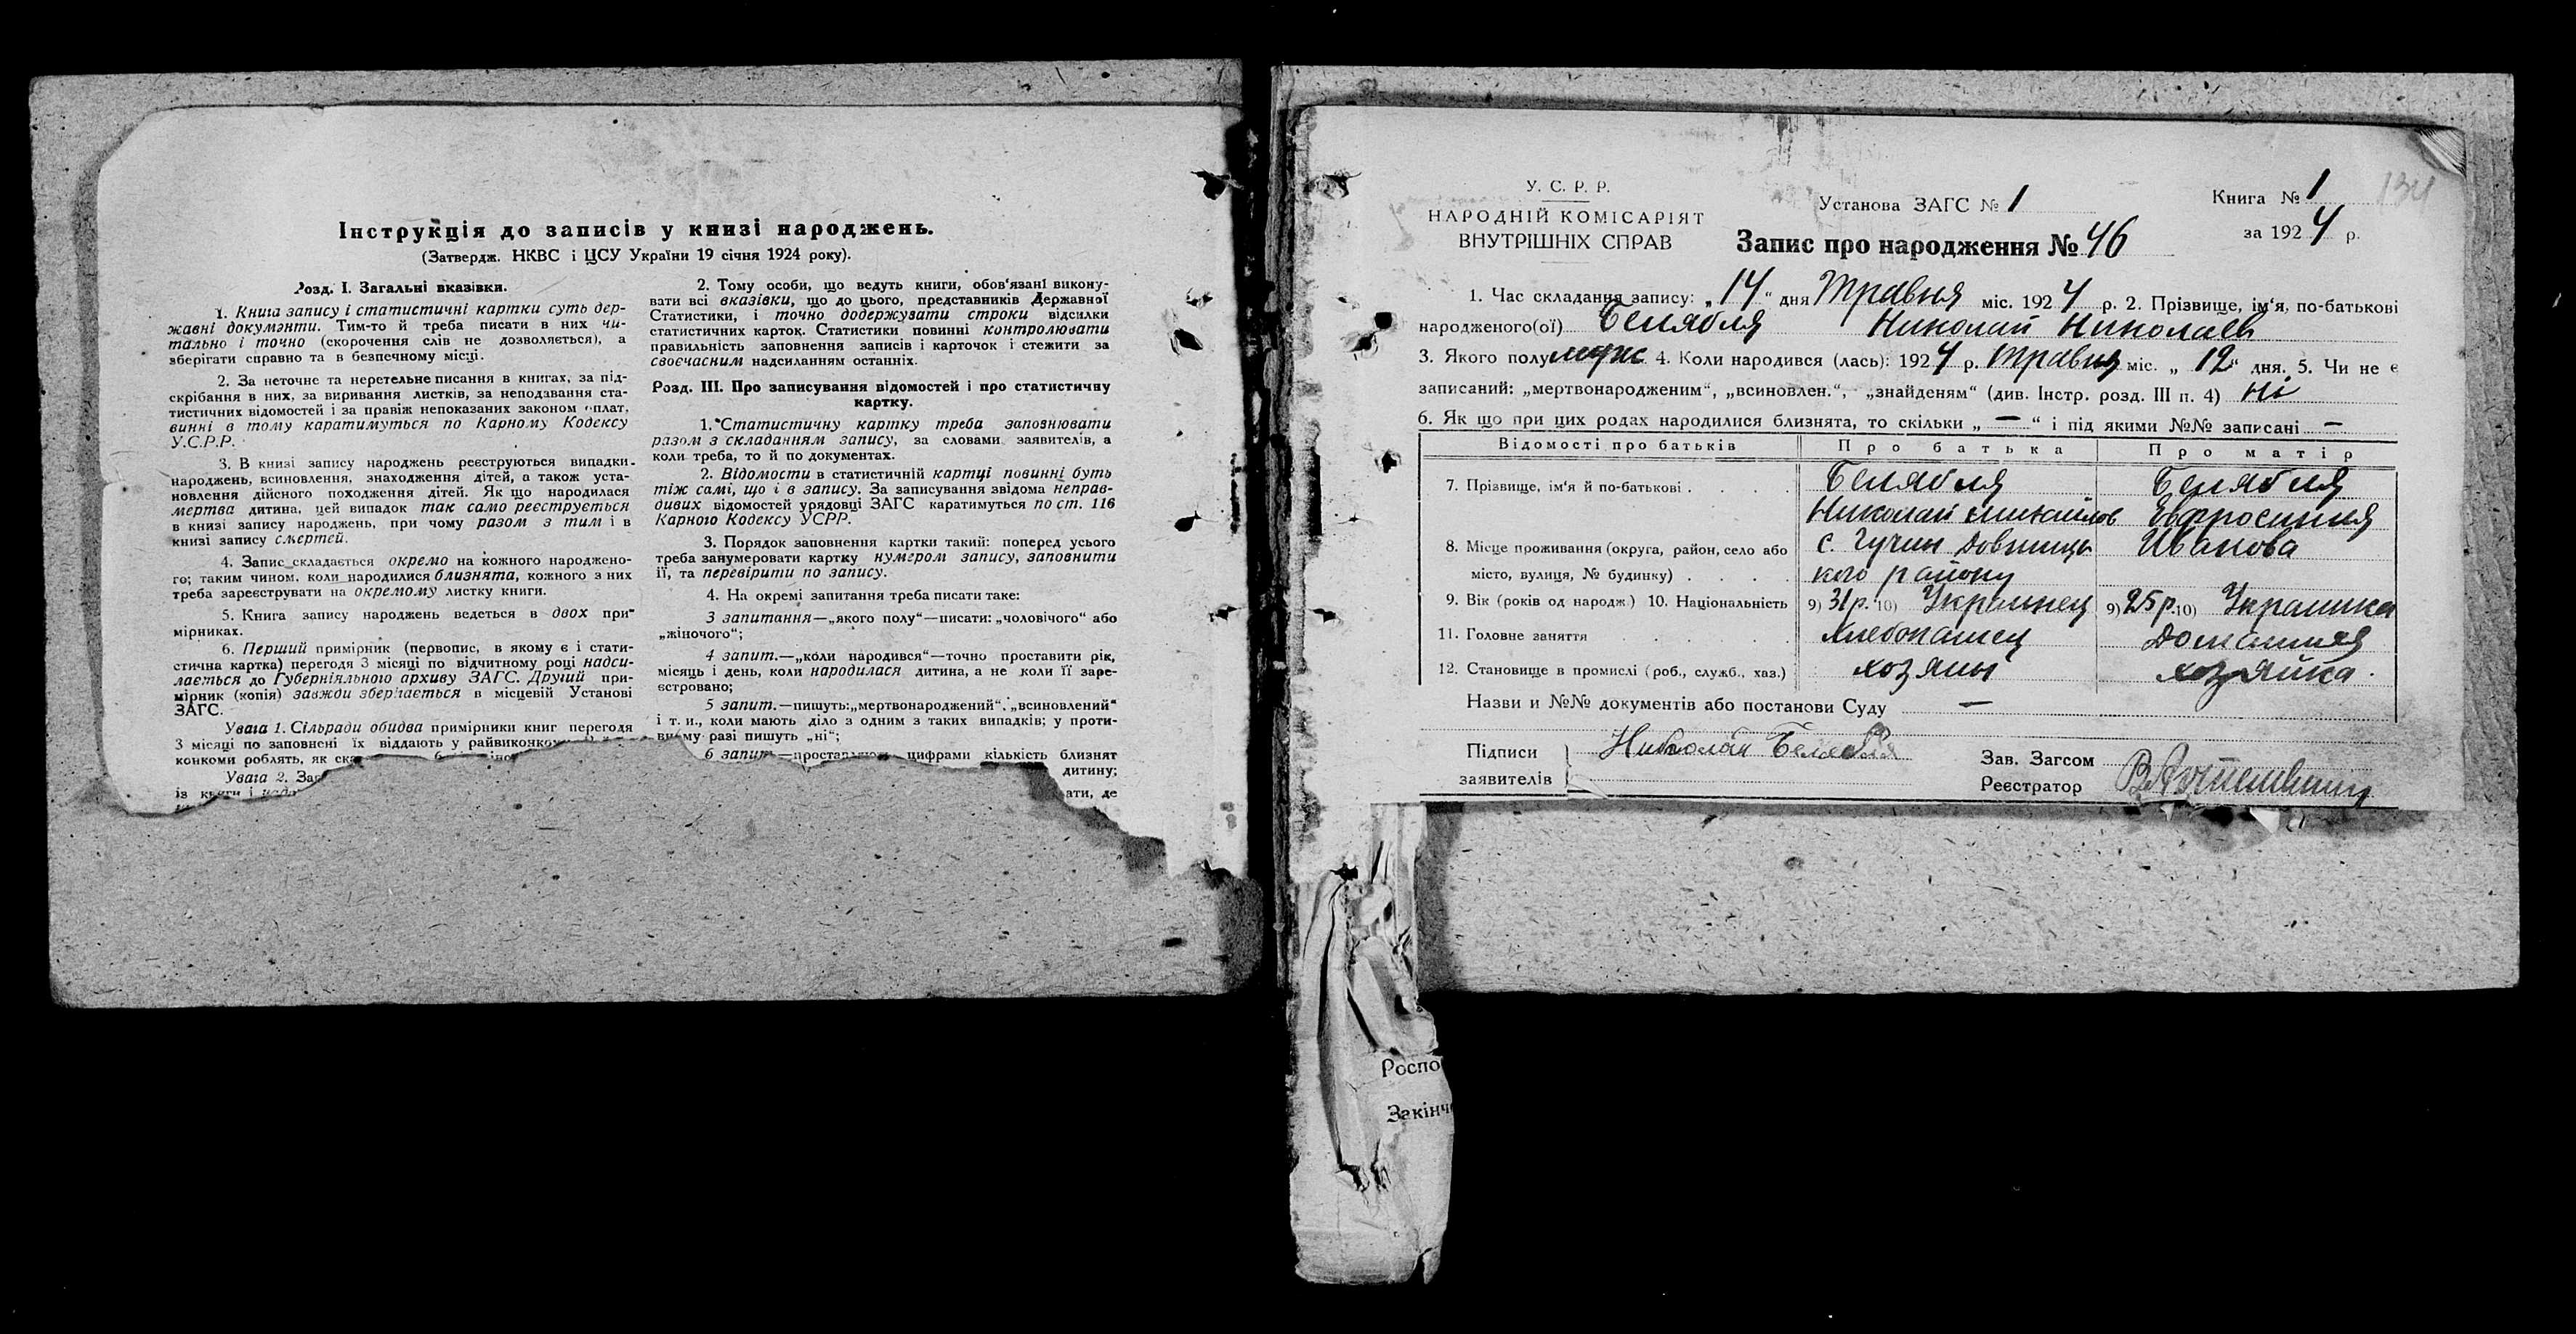 Інструкція до записів у книзі народжень.
(Затвердж. НКВС і ЦСУ України 19 січня 1924 року).
Розд. І. Загальні вказівки.
1. Книга запису і статистичні картки суть дер-
жавні документи. Тим-то й треба писати в них чи-
тально і точно (скорочення слів не дозволяється), а
зберігати справно та в безпечному місці.
2. За неточне та неретельне писання в книгах, за під-
скрібання в них, за виривання листків, за неподавання ста-
тистичних відомостей і за правіж непоказаних законом оплат,
винні в тому каратимуться по Карному Кодексу
У.С.Р.Р.
3. В книзі запису народжень реєструються випадки
народжень, всиновлення, знаходження дітей, а також уста-
новлення дійсного походження дітей. Як що народилася
мертва дитина, цей випадок так само реєструється
в книзі запису народжень, при чому разом з тим і в
книзі запису смертей.
4. Запис складається окремо на кожного народжено-
го; таким чином, коли народилися близнята, кожного з них
треба зареєструвати на окремому листку книги.
5. Книга запису народжень ведеться в двох при-
мірниках.
6. Перший примірник (первопис, в якому є і стати-
стична картка) перегодя 3 місяці по відчитному році надси-
лається до Губерніяльного архиву ЗАГС. Другий при-
мірник (копія) завжди зберігається в місцевій Установі
ЗАГС.
Увага 1. Сільради обидва примірники книг перегодя
3 місяці по заповнені їх віддають у райвиконком
конкоми роблять, як ска
Увага 2. Заг
із книги і
2. Тому особи, що ведуть книги, обов'язані викону-
вати всі вказівки, що до цього, представників Державної
Статистики, і точно додержувати строки відсилки
статистичних карток. Статистики повинні контролювати
правильність заповнення записів і карточок і стежити за
своєчасним надсиланням останніх.
Розд. III. Про записування відомостей і про статистичну
картку.
1. Статистичну картку треба заповнювати
разом з складанням запису, за словами заявителів, а
коли треба, то й по документах.
2. Відомости в статистичній картці повинні буть
тіж самі, що і в запису. За записування звідома неправ-
дивих відомостей урядовці ЗАГС каратимуться по ст. 116
Карного Кодексу УСРР.
3. Порядок заповнення картки такий: поперед усього
треба занумеровати картку нумером запису, заповнити
її, та перевірити по запису.
4. На окремі запитання треба писати таке:
3 запитання—„якого полу“—писати: „чоловічого“ або
„жіночого“;
4 запит.—„коли народився“—точно проставити рік,
місяць і день, коли народилася дитина, а не коли її заре-
єстровано;
5 запит.—пишуть: „мертвонароджений“, „всиновлений“
і т. и., коли мають діло з одним з таких випадків; у проти-
вному разі пишуть „ні“;
6 запит.—проставляють цифрами кількість близнят
дитину;
ати, де
У. С. Р. Р.
НАРОДНІЙ КОМІСАРІЯТ
ВНУТРІШНІХ СПРАВ
Установа ЗАГС № 1
Книга № 1
134
Запис про народження № 46
за 1924 р.
1. Час складання запису: „14“ дня Травня міс. 1924 р. 2. Прізвище, ім'я, по-батькові
народженого(ої) Белябля Николай Николаев
3. Якого полу муж 4. Коли народився (лась): 1924 р. Травня міс. „12“ дня. 5. Чи не є
записаний: „мертвонародженим“, „всиновлен.“, „знайденям“ (див. Інстр. розд. III п. 4) Ні
6. Як що при цих родах народилися близнята, то скільки „—“ і під якими №№ записані —
Відомості про батьків Про батька Про матір
7. Прізвище, ім'я й по-батькові . . . Белябля Белябля
Николай Михайлов Евфросиния
8. Місце проживання (округа, район, село або с. Гучин Довжиць Иванова
місто, вулиця, № будинку) . . . . кого району
9. Вік (років од народж.) 10. Національність 9) 31 р. 10) Украинец 9) 25 р. 10) Украинка
11. Головне заняття . . . . . Хлебопашец Домашняя
12. Становище в промислі (роб., служб., хаз.) хозяин хозяйка
Назви и №№ документів або постанови Суду —
Підписи
заявителів
Николай Белябля
Зав. Загсом
Реєстратор
Роспо
Закінч